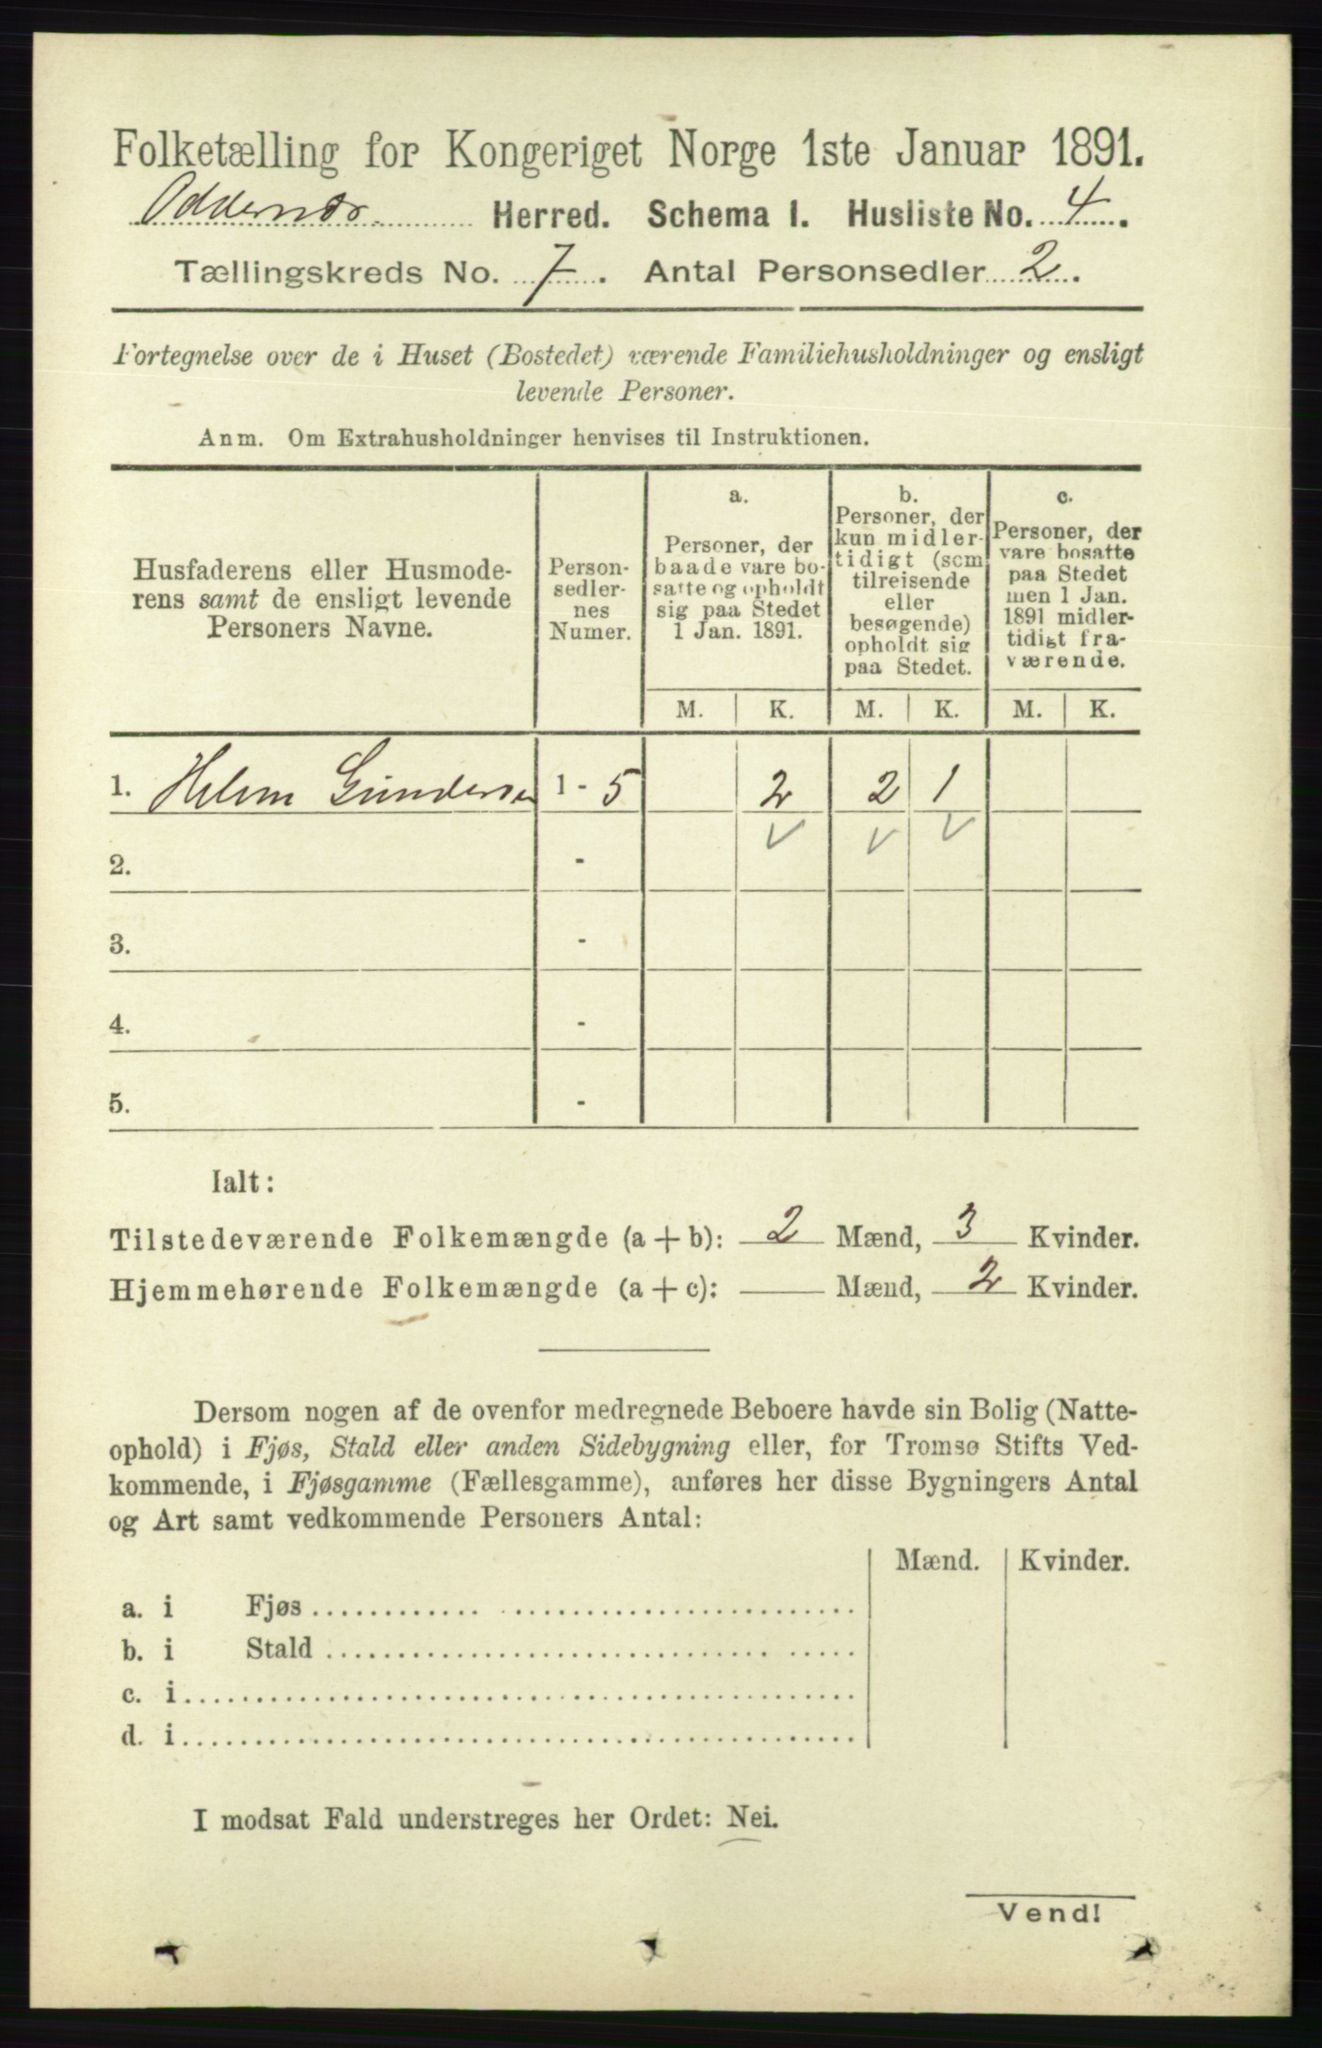 Folketælling for Kongeriget Norge 1ste Januar 1891.
Oddernæs Herred. Schema I. Husliste No. 4.
Tællingskreds No. 7. Antal Personsedler 2.
Fortegnelse over de i Huset (Bostedet) værende Familiehusholdninger og ensligt
levende Personer.
Anm. Om Extrahusholdninger henvises til Instruktionen.
Husfaderens eller Husmode-
rens samt de ensligt levende
Personers Navne.
Person-
sedler-
nes
Numer.
a.
Personer, der
baade vare bo-
satte og opholdt
sig paa Stedet
1 Jan. 1891.
b.
Personer, der
kun midler-
tidigt (som
tilreisende
eller
besøgende)
opholdt sig
paa Stedet.
c.
Personer, der
vare bosatte
paa Stedet
men 1 Jan.
1891 midler-
tidigt fra-
værende.
M. K. M. K. M. K.
1. Helene Gundersen 1 - 5 2 2 1
2. -
3. -
4. -
5. -
Ialt:
Tilstedeværende Folkemængde (a + b): 2 Mænd, 3 Kvinder.
Hjemmehørende Folkemængde (a + c): — Mænd, 2 Kvinder.
Dersom nogen af de ovenfor medregnede Beboere havde sin Bolig (Natte-
ophold) i Fjøs, Stald eller anden Sidebygning eller, for Tromsø Stifts Ved-
kommende, i Fjøsgamme (Fællesgamme), anføres her disse Bygningers Antal
og Art samt vedkommende Personers Antal:
Mænd. Kvinder.
a. i Fjøs
b. i Stald
c. i
d. i
I modsat Fald understreges her Ordet: Nei.
Vend!